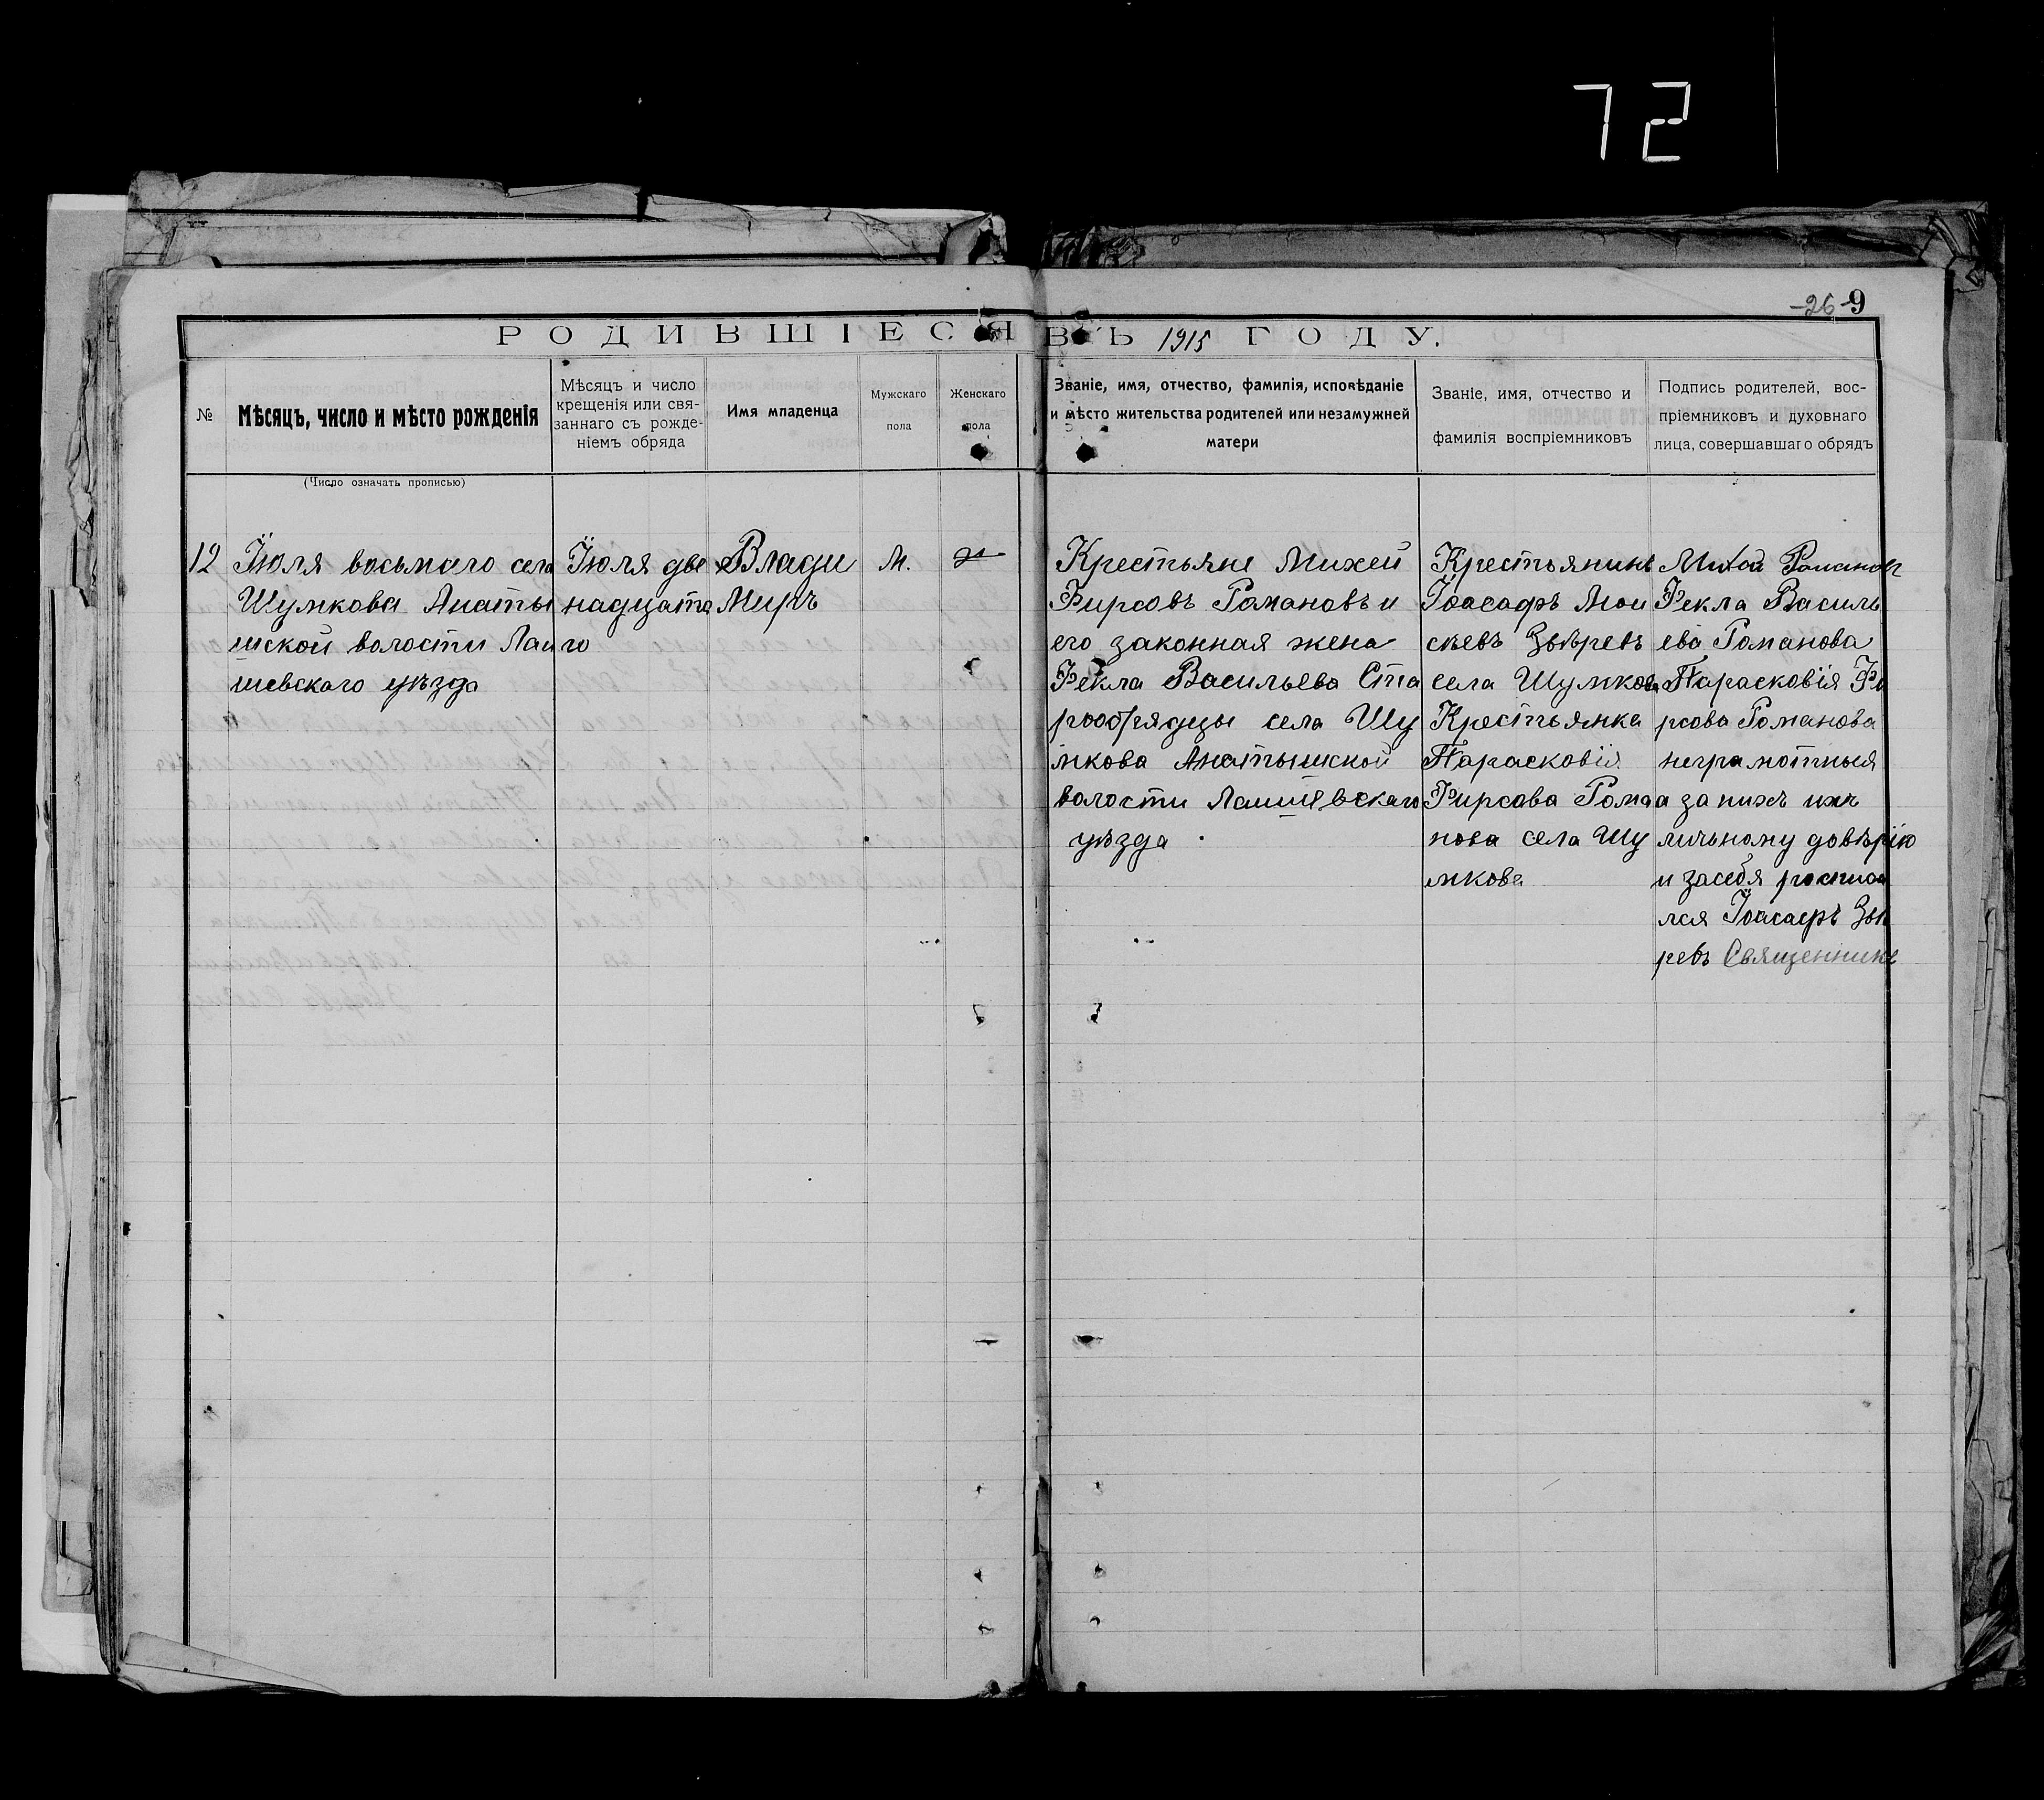 72
-26-
9
РОДИВШІЕСЯ ВЪ 1915 ГОДУ.
№
Мѣсяцъ, число и мѣсто рожденія
Мѣсяцъ и число
крещенія или свя-
заннаго съ рожде-
ніемъ обряда
Имя младенца
Мужскаго
пола
Женскаго
пола
Званіе, имя, отчество, фамилія, исповѣданіе
и мѣсто жительства родителей или незамужней
матери
Званіе, имя, отчество и
фамилія воспріемниковъ
Подпись родителей, вос-
пріемниковъ и духовнаго
лица, совершавшаго обрядъ
(Число означать прописью)
12
Июля восьмаго села
Шумкова Анаты
шской волости Лаи
шевскаго уѣзда
Июля две
надцата
го
Влади
Миръ
М.
Крестьяне Михей
Фирсовъ Романовъ и
его законная жена
Фекла Васильева Ста
рообрядцы села Шу
мкова Анатышской
волости Лаишевскаго
уѣзда
Крестьянинъ
Іоасафъ Мои
сѣевъ Звѣревъ
села Шумкова
Крестьянка
Парасковія
Фирсова Рома
нова села Шу
мкова
Михей Романовъ
Фекла Василь
ева Романова
Парасковія Фи
рсова Романова
неграмотныя
а за нихъ ихъ
личному довѣрію
и засебя росписа
лся Іоасафъ Звѣ
ревъ Священникъ